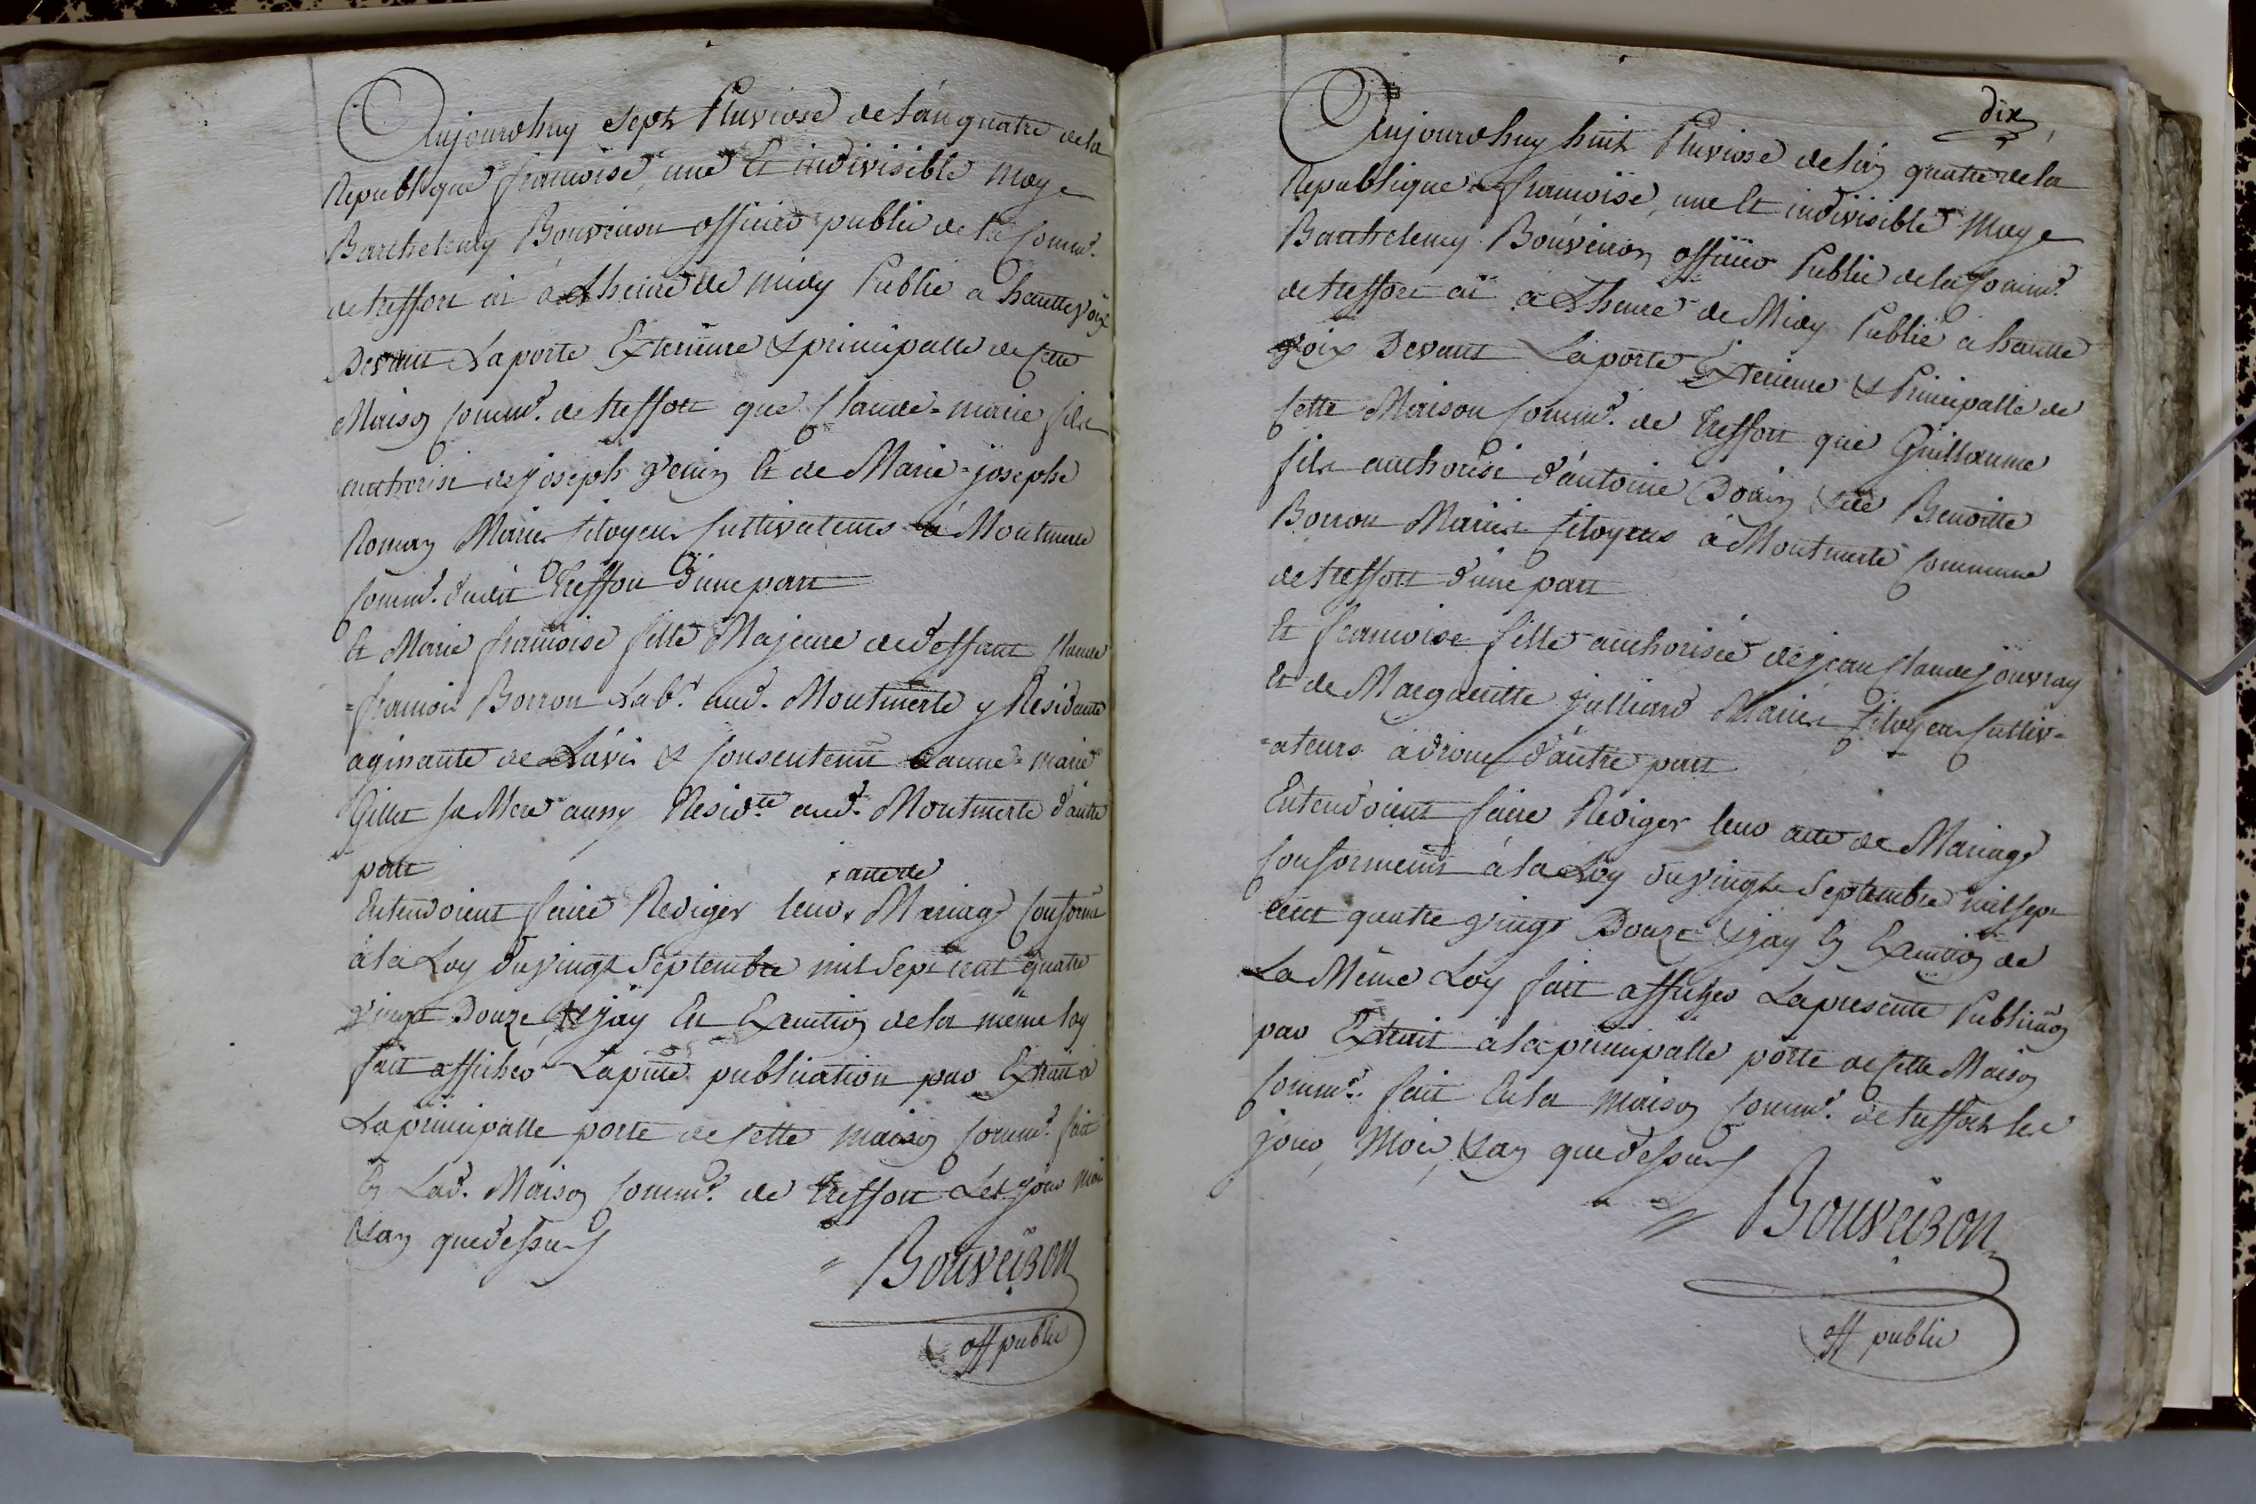 Aujourdhuy sept Pluviose de l'an quatre de la
Republique francoise, une et indivisible moy e
Barthelemy Bouveiron officier public de la Comm.e
de treffort ai a Lheure de midy Publié a hautte voix
Devant La porte Exterieure & principalle de Cette
Maison Comm.e de treffort que Claude=marie fils
authorisé de joseph Venin et de Marie=josephe
Roman Mariés Citoyens Cultivateurs à Montmerle
Comm.e dudit Treffort d'une part
Et Marie francoise fille Majeure de deffunt Claude
=francois Borron Lab.r aud. Montmerle y Residante
agissante de L'avis & Consentemt d'anne=marie
Gillet sa Mere aussy Resid.te aud. Montmerle d'autre
part
x acte de
Entendoient faire Rediger leur x Mariage Conforme
à la Loy du vingt Septembre mil Sept cent quatre
vingt Douze & j'ay En Execution de la meme loy
fait afficher La pnte publication par Extrait à
La principalle porte de Cette maison Comm.e fait
En Lad. Maison Comm.e de treffort Les jour mois
& an que dessus
Bouveiron
off public
dix
Aujourdhuy huit Pluviose de l'an quatre de la
Republique francoise, une et indivisible Moy e
Barthelemy Bouveiron officier Public de la Comm.e
de treffort ai a Lheure de Midy Publié a hautte
voix Devant La porte Exterieure & Principalle de
Cette Maison Comm.e de Treffort que Guillaume
fils authorisé d'antoine Doain & de Benoitte
Borron Mariés Citoyens à Montmerle Commune
de treffort d'une part
Et francoise fille authorisée de jean Claude jouvray
Et de Margueritte julliard Mariés Citoyens Cultiv=
=ateurs à drom d'autre part
Entendoient faire Rediger leur acte de Mariage
Conformement à la Loy du vingt Septembre mil sept
cent quatre vingt Douze & j'ay En Execution de
La Même Loy fait afficher La presente Publication
par Extrait à la principalle porte de Cette Maison
Comm.e fait En la maison Comm.e de treffort les
jour, Mois, & an que dessus
Bouveiron
off public